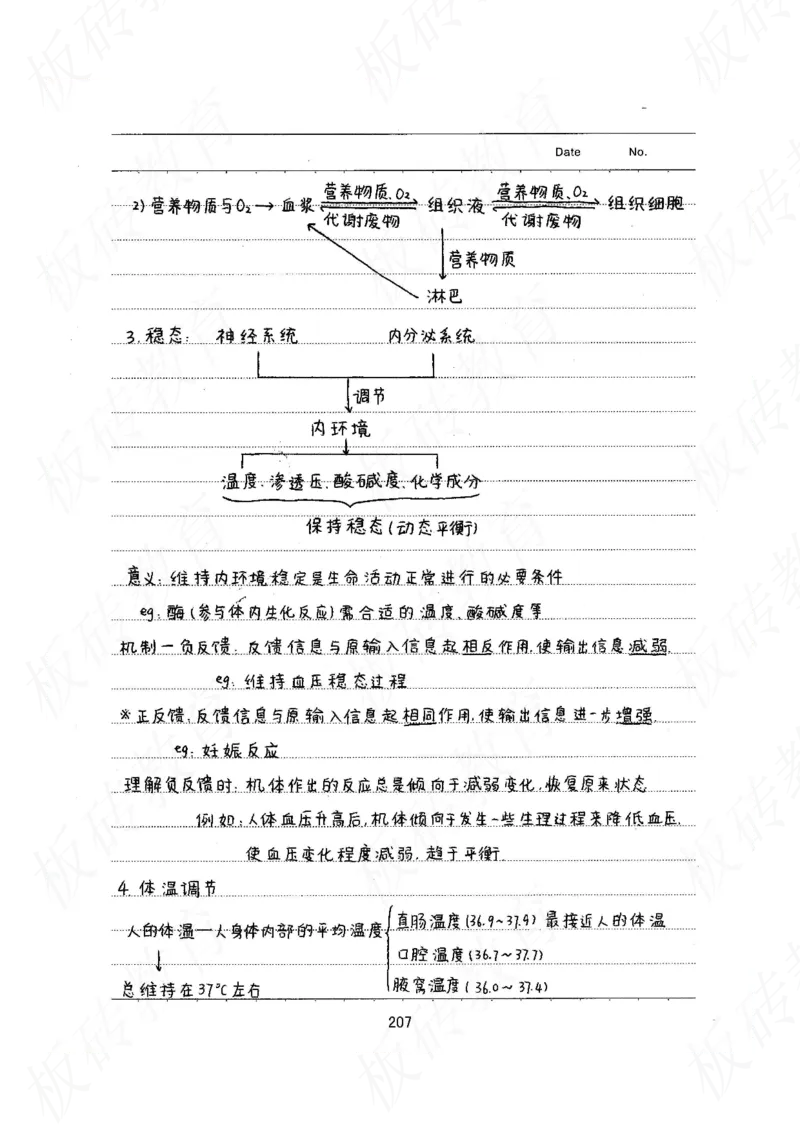 Date No.
2) 营养物质与O₂ → 血浆 营养物质、O₂ 代谢废物 组织液 营养物质、O₂ 代谢废物 组织细胞
营养物质
淋巴
3. 稳态： 神经系统 内分泌系统
调节
内环境
温度、渗透压、酸碱度、化学成分
保持稳态(动态平衡)
意义：维持内环境稳定是生命活动正常进行的必要条件
eg：酶(参与体内生化反应)需合适的温度、酸碱度等
机制—负反馈. 反馈信息与原输入信息起相反作用,使输出信息减弱.
eg：维持血压稳态过程
※正反馈、反馈信息与原输入信息起相同作用,使输出信息进一步增强.
eg：妊娠反应
理解负反馈时：机体作出的反应总是倾向于减弱变化,恢复原来状态
例如：人体血压升高后,机体倾向于发生一些生理过程来降低血压.
使血压变化程度减弱,趋于平衡.
4. 体温调节
人的体温—人身体内部的平均温度 直肠温度(36.9~37.9) 最接近人的体温
口腔温度(36.7~37.7)
总维持在37℃左右 腋窝温度(36.0~37.4)
207
板砖教育